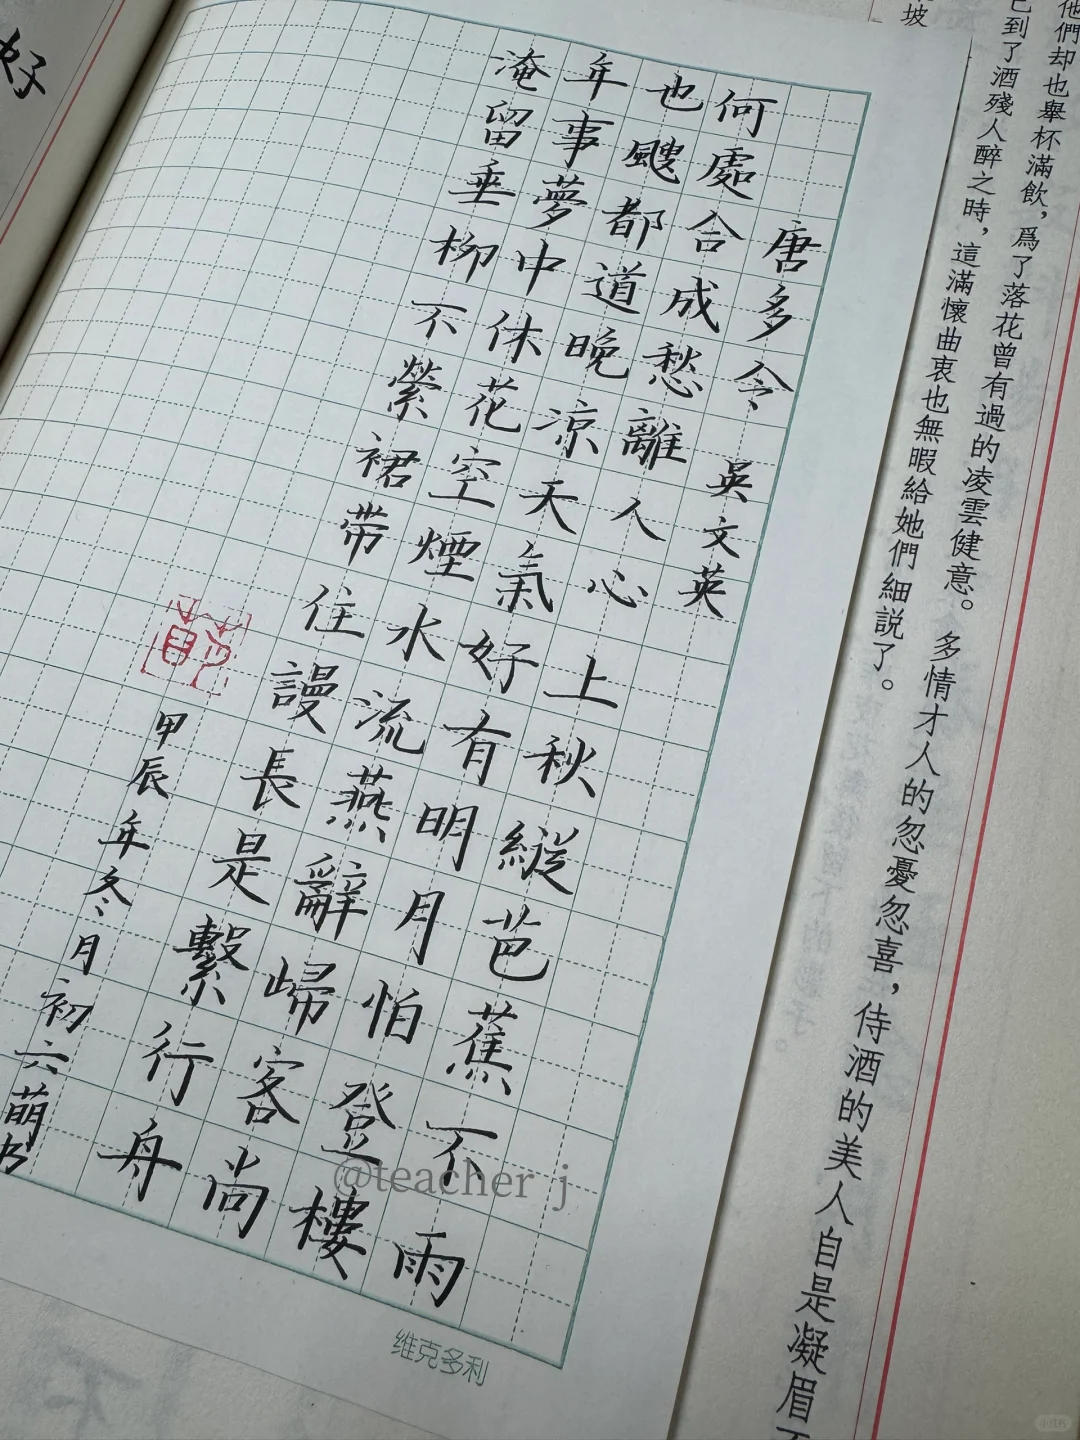 他們却也舉杯滿飲，爲了落花曾有過的凌雲健意。多情才人的忽憂忽喜，侍酒的美人自是凝眉不
已到了酒殘人醉之時，這滿懷曲衷也無暇給她們細説了。
坡
唐多令 吳文英
何處合成愁離人心上秋縱芭蕉不雨
也颼都道晚涼天氣好有明月怕登樓
年事夢中休花空煙水流燕辭歸客尚
淹留垂柳不縈裙帶住謾長是繫行舟
甲辰年冬月初六萌书
好
维克多利
@teacher j
小红书